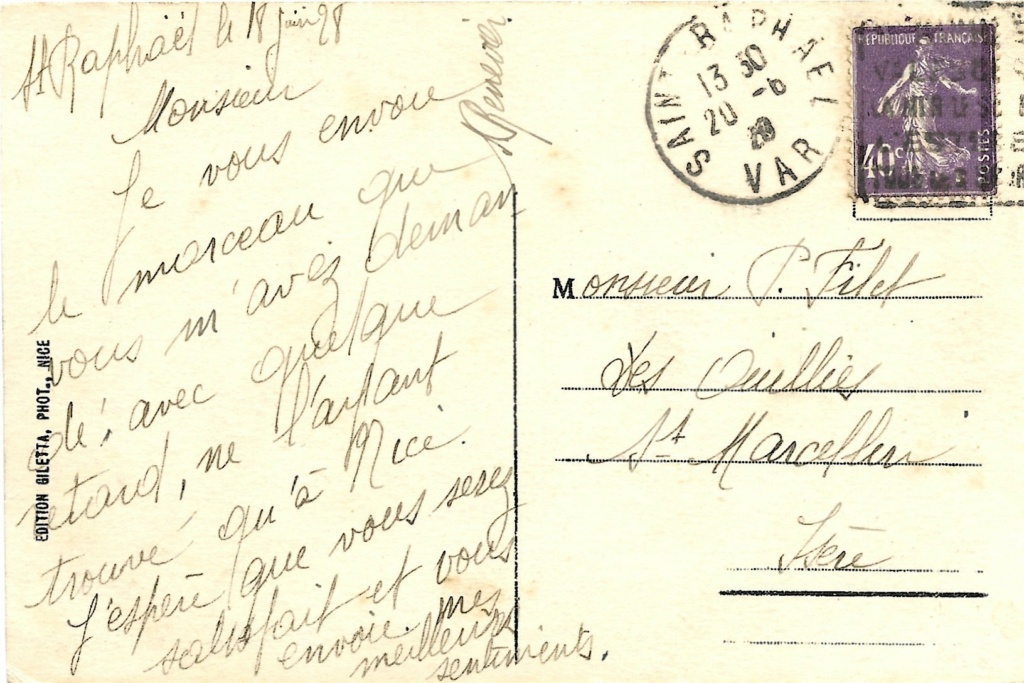 St Raphaël le 18 juin 28
Monsieur
Je vous envoie
le morceau que
vous m'avez deman
dé, avec quelque
retard, ne l'ayant
trouvé qu'à Nice.
J'espère que vous serez
satisfait et vous
envoie mes
meilleurs
sentiments.
EDITION GILETTA, PHOT., NICE
SAINT RAPHAEL
13 30
20 -6
VAR
REPUBLIQUE FRANÇAISE
40c
POSTES
Monsieur P. Filet
Les
St Marcellin
Isère